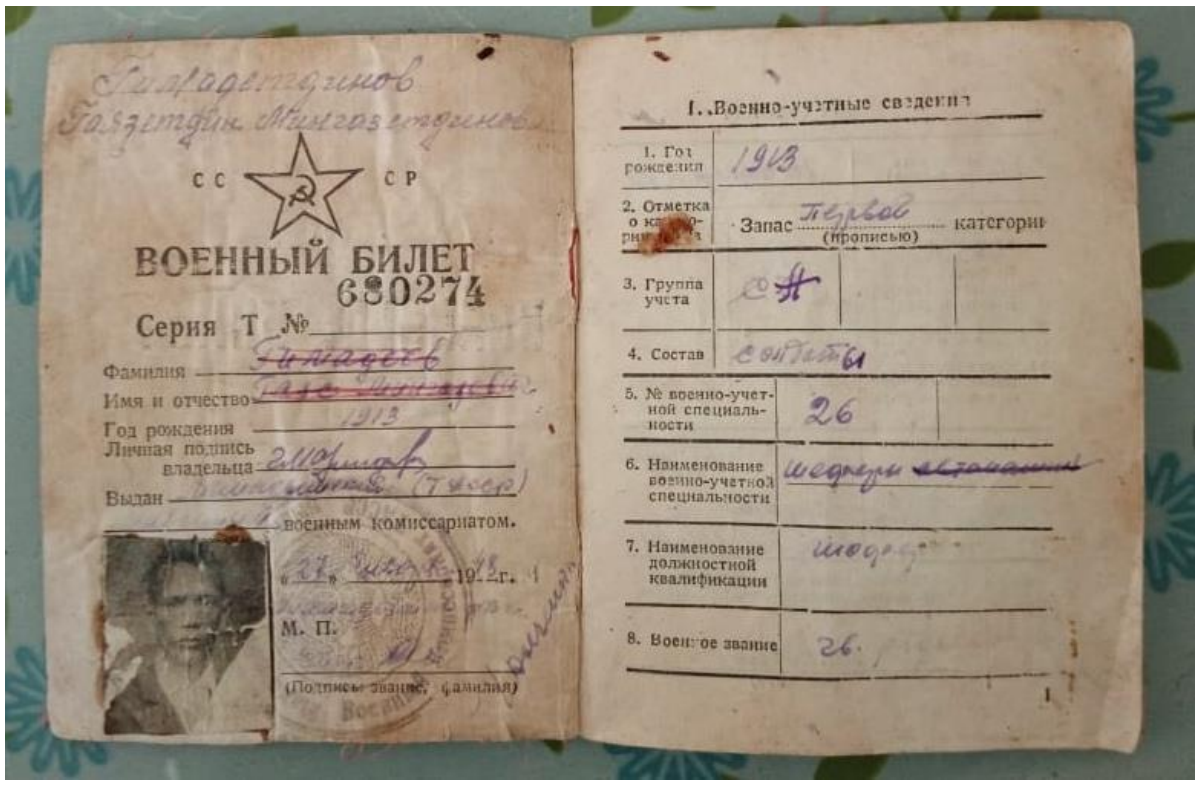 Гимадетдинов
Гаязетдин Мингазетдинов
СС СР
ВОЕННЫЙ БИЛЕТ
680274
Серия Т №
Фамилия Гимадеев
Имя и отчество
Год рождения 1913
Личная подпись
владельца
Выдан (ТАССР)
военным комиссариатом.
„27“ 19 48 г.
М. П.
(Подпись звание, фамилия)
I. Военно-учетные сведения
1. Год
рождения 1913
2. Отметка
о
Запас первой категории
(прописью)
3. Группа
учета СА
4. Состав солдаты
5. № военно-учет-
ной специаль-
ности 26
6. Наименование
военно-учетной
специальности шоферы автомашин
7. Наименование
должностной
квалификации шофер
8. Военное звание
1